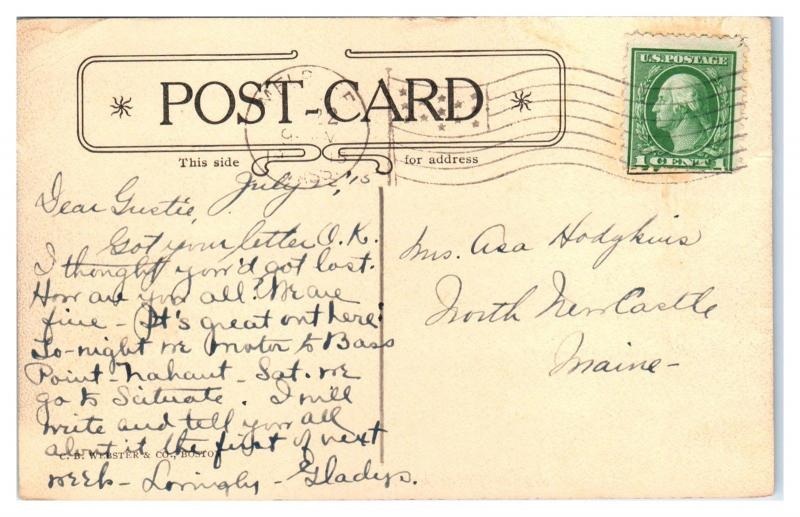 U.S. POSTAGE
1 CENT 1
POST-CARD
This side
for address
MASS.
July 22, '15
Dear Gustie,
Got your letter O.K.
I thought you'd got lost.
How are you all? We are
fine - It's great out here!
To-night we motor to Bass
Point - Nahant - Sat. we
go to Scituate. I will
write and tell you all
about it the first of next
week - Lovingly - Gladys.
C. B. WEBSTER & CO., BOSTON
Mrs. Asa Hodgkins
North NewCastle
Maine -